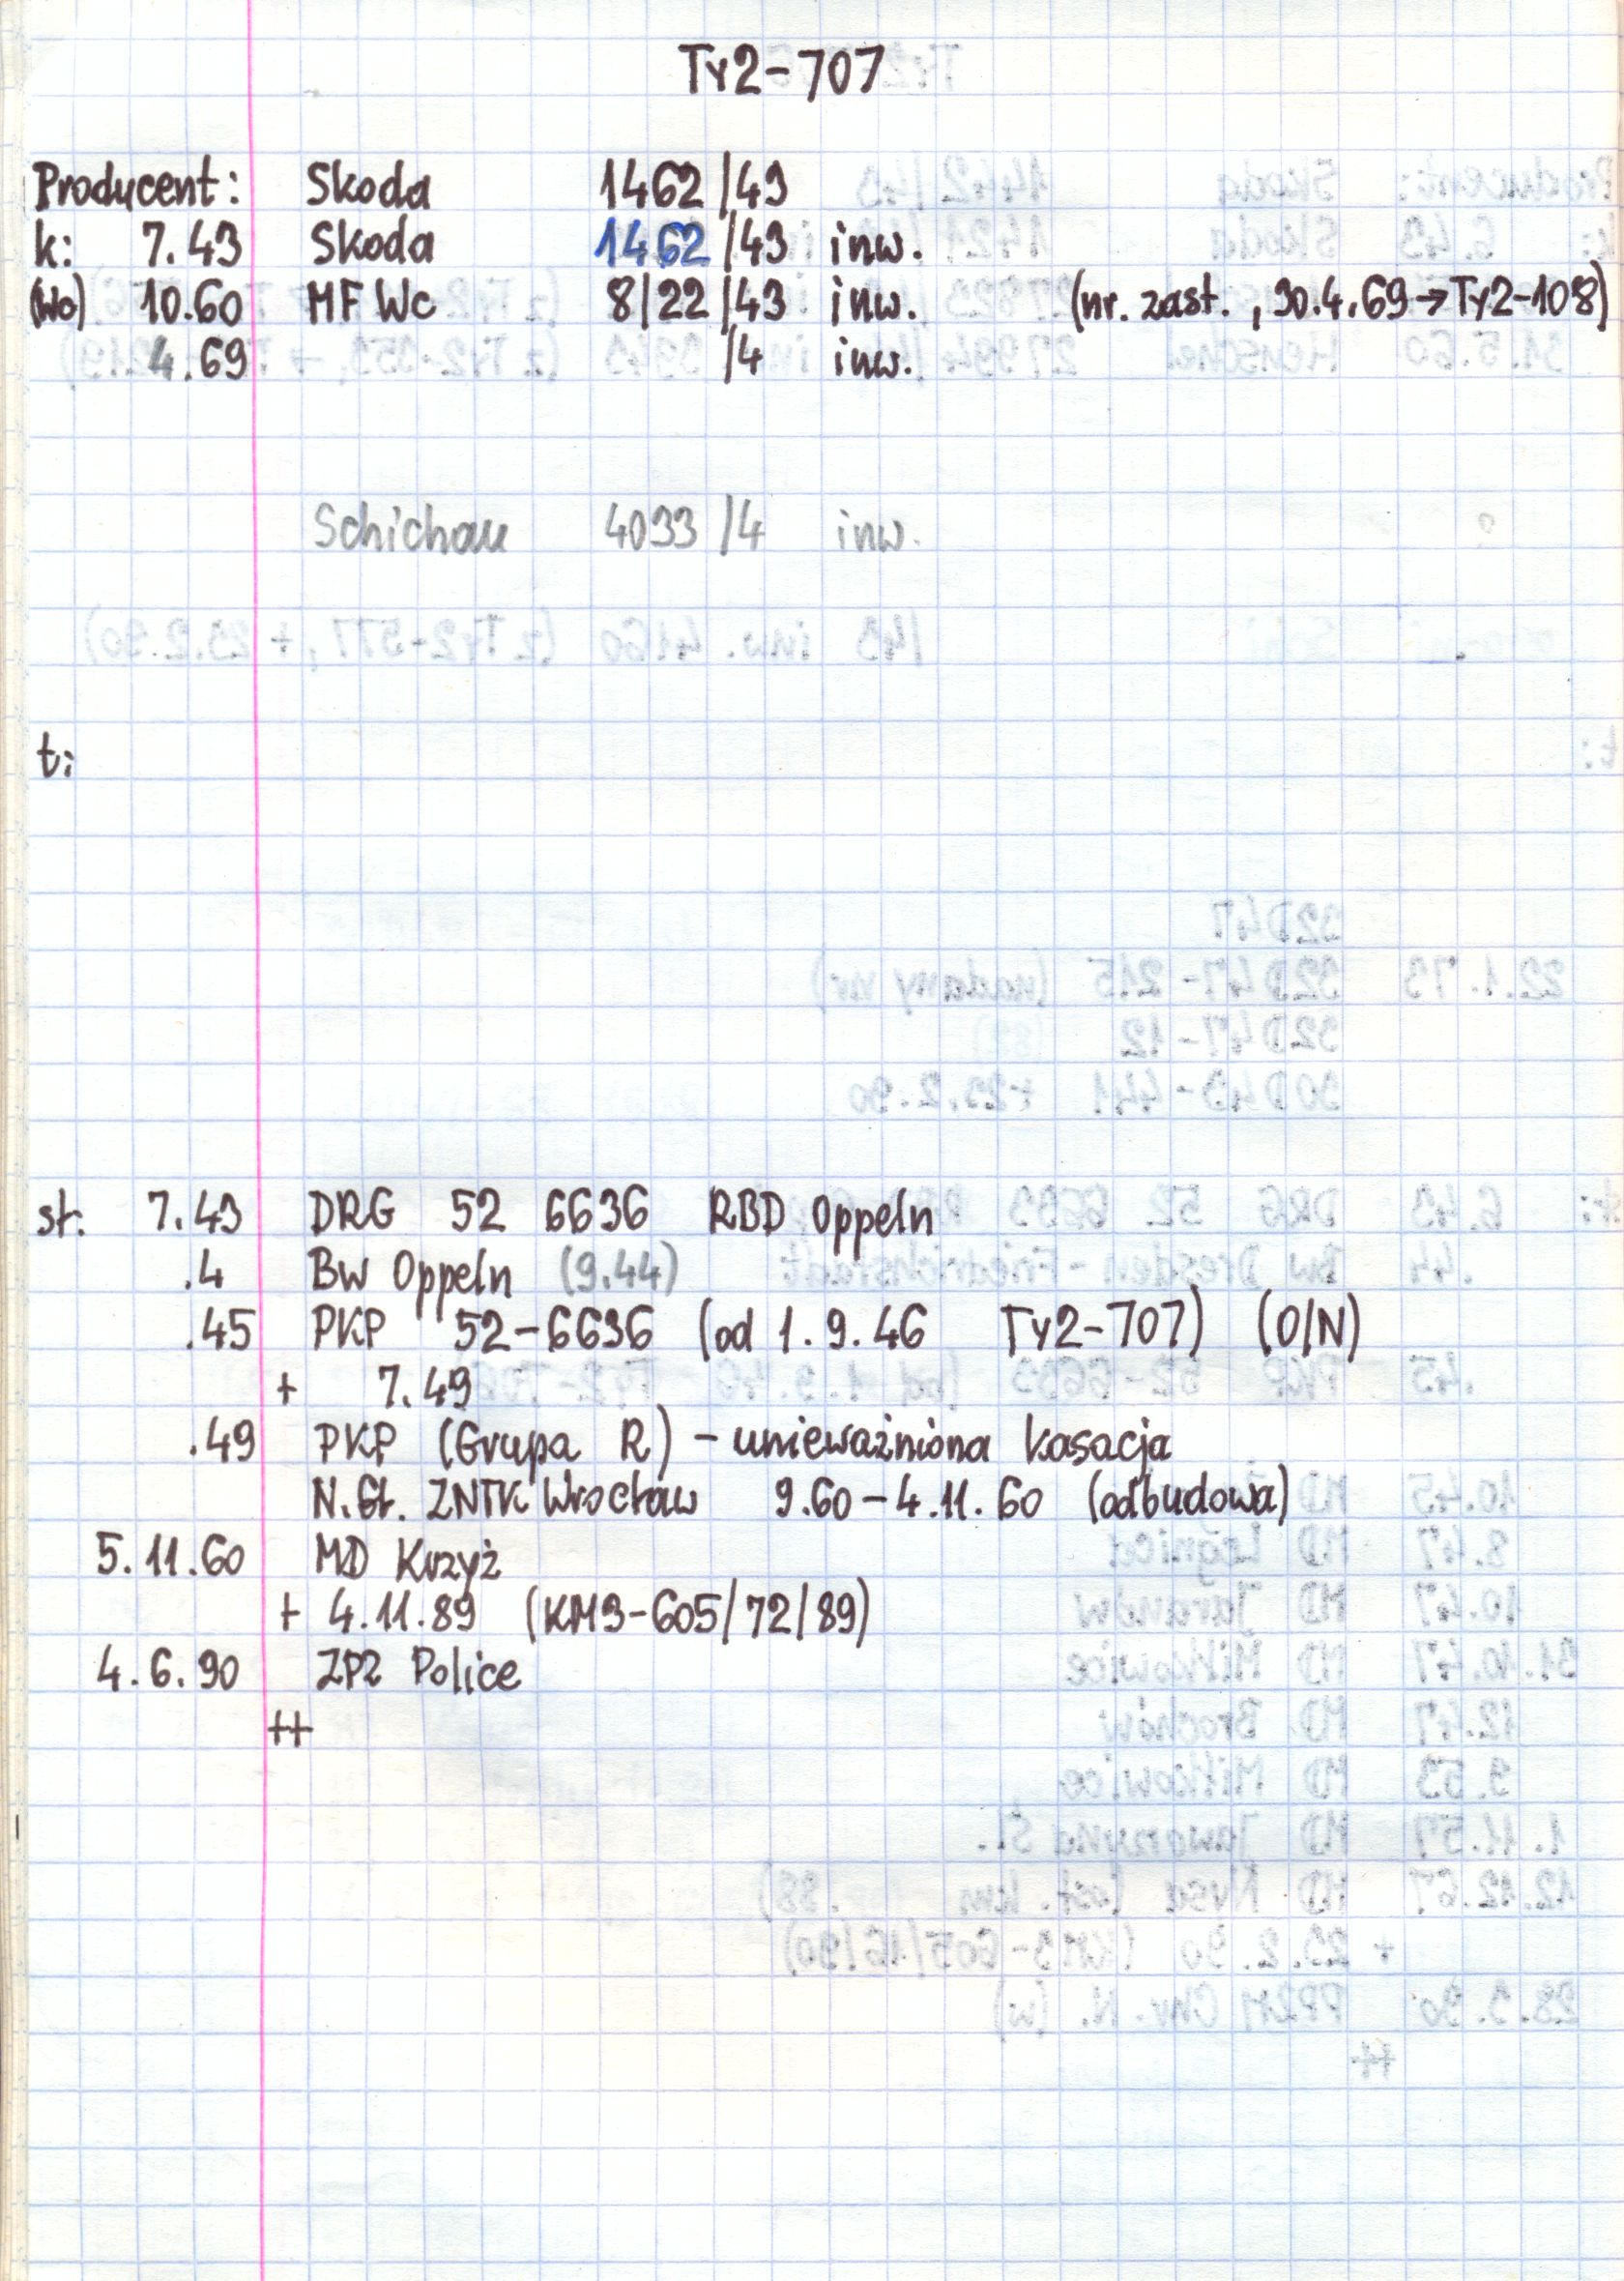 Ty2-707
Producent: Skoda 1462/43
k: 7.43 Skoda 1462/43 inw.
(Wo) 10.60 MF Wc 8/22/43 inw. (nr. zast. , 30.4.69→Ty2-108)
4.69 /4 inw.
Schichau 4033/4 inw.
t:
st. 7.43 DRG 52 6636 RBD Oppeln
.4 Bw Oppeln (9.44)
.45 PKP 52-6636 (od 1.9.46 Ty2-707) (O/N)
+ 7.49
.49 PKP (Grupa R) - unieważniona kasacja
N.Gł. ZNTK Wrocław 9.60-4.11.60 (odbudowa)
5.11.60 MD Krzyż
+ 4.11.89 (KM3-605/72/89)
4.6.90 ZPZ Police
++